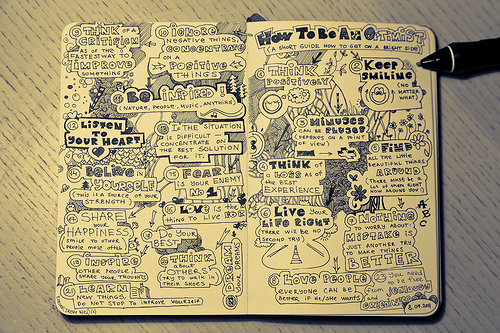 THINK OF A
CRITICISM
AS OF THE
FASTEST WAY TO
IMPROVE
SOMETHING
IGNORE
NEGATIVE THINGS,
CONCENTRATE
ON A
POSITIVE
THINGS
BE INSPIRED!
(NATURE, PEOPLE, MUSIC, ANYTHING)
12 LISTEN
TO
YOUR HEART
13 IF THE SITUATION
IS DIFFICULT -
CONCENTRATE ON
THE BEST SOLUTION
FOR IT.
14 BELIVE
YOURSELF
(THIS IS A SOURCE OF YOUR
STRENGTH)
15 FEAR
IS YOUR ENEMY
№ 1
SHARE
YOUR
HAPPINESS
SMILE TO OTHER
PEOPLE MORE OFTEN
LOVE IS THE
THING TO LIVE FOR
DO YOUR
BEST
INSPIRE
OTHER PEOPLE,
SHARE YOUR THOUGHTS
THINK
OF
OTHERS
TRY TO WALK IN
THEIR SHOES
DREAM
LEARN
NEW THINGS,
DO NOT STOP TO IMPROVE YOURSELF
HOW TO BE AN OPTIMIST
(A SHORT GUIDE HOW TO GET ON A RIGHT SIDE)
1 THINK
POSITIVELY
2 KEEP
SMILING
(NO
MATTER
WHAT)
3 MINUSES
CAN BE PLUSES
(DEPENDS ON A POINT
OF VIEW)
4 THINK OF
A LOSS AS OF
THE BEST
EXPERIENCE
5 FIND
ALL THE LITTLE
BEAUTIFUL THINGS
AROUND
(THERE MUST BE A
LOT OF THEM RIGHT
NOW AROUND YOU!)
6 LIVE YOUR
LIFE RIGHT
(THERE WILL BE NO
SECOND TRY)
7 NOTHING
TO WORRY ABOUT
MISTAKE IS
JUST ANOTHER TRY
TO MAKE THINGS
BETTER
A
B
C
8 LOVE PEOPLE
EVERYONE CAN BE
BETTER IF HE/SHE WANTS
23 YOU NEED
TO BE FREE
FROM JEALOUSY
AND
GREEDINESS